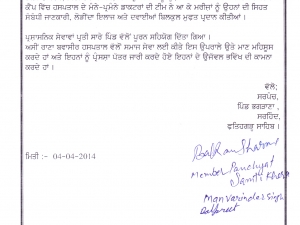 ਕੈਂਪ ਵਿੱਚ ਹਸਪਤਾਲ ਦੇ ਮੰਨੇ-ਪ੍ਰਮੰਨੇ ਡਾਕਟਰਾਂ ਦੀ ਟੀਮ ਨੇ ਆ ਕੇ ਮਰੀਜਾਂ ਨੂੰ ਉਹਨਾਂ ਦੀ ਸਿਹਤ
ਸੰਬੰਧੀ ਜਾਣਕਾਰੀ, ਲੋੜੀਂਦਾ ਇਲਾਜ ਅਤੇ ਦਵਾਈਆਂ ਬਿਲਕੁਲ ਮੁਫਤ ਪ੍ਰਦਾਨ ਕੀਤੀਆਂ।
ਪ੍ਰਸ਼ਾਸਨਿਕ ਸੇਵਾਵਾਂ ਪ੍ਰਤੀ ਸਾਰੇ ਪਿੰਡ ਵੱਲੋਂ ਪੂਰਨ ਸਹਿਯੋਗ ਦਿੱਤਾ ਗਿਆ।
ਅਸੀਂ ਰਾਣਾ ਬਵਾਸੀਰ ਹਸਪਤਾਲ ਵੱਲੋਂ ਸਮਾਜ ਸੇਵਾ ਲਈ ਕੀਤੇ ਇਸ ਉਪਰਾਲੇ ਉਤੇ ਮਾਣ ਮਹਿਸੂਸ
ਕਰਦੇ ਹਾਂ ਅਤੇ ਇਹਨਾਂ ਨੂੰ ਪ੍ਰਸ਼ੰਸਾ ਪੱਤਰ ਜਾਰੀ ਕਰਦੇ ਹੋਏ ਇਹਨਾਂ ਦੇ ਉਜੱਵਲ ਭਵਿੱਖ ਦੀ ਕਾਮਨਾ
ਕਰਦੇ ਹਾਂ।
ਵੱਲੋਂ:
ਸਰਪੰਚ,
ਪਿੰਡ ਭਗੜਾਣਾ,
ਸਰਹਿੰਦ,
ਫਤਿਹਗੜ੍ਹ ਸਾਹਿਬ।
ਮਿਤੀ :- 04-04-2014
Sharma
Member Panchyat
Samti
Manvarinder Singh